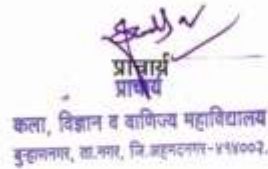 प्राचार्य
प्राचार्य
कला, विज्ञान व वाणिज्य महाविद्यालय
बुऱ्हाणनगर, ता.नगर, जि.अहमदनगर-४१४००२.